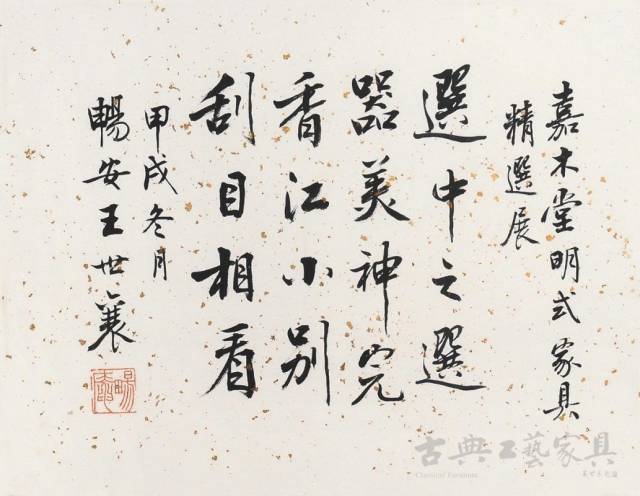 嘉木堂明式家具
精選展
選中之選
器美神完
香江小別
刮目相看
甲戌冬月
暢安王世襄
暢安
古典工藝家具
Classical Furniture